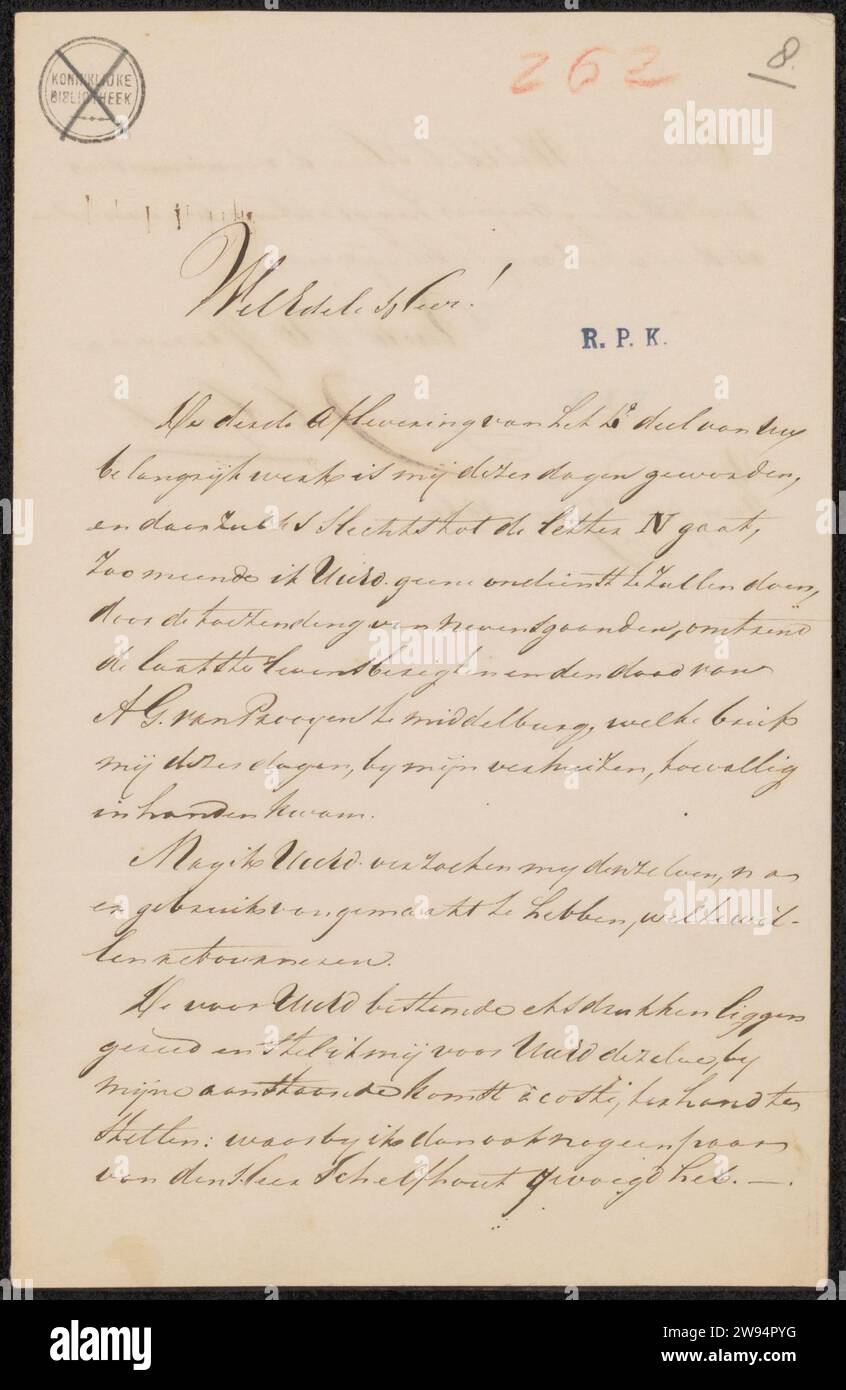 KONINKLIJKE
BIBLIOTHEEK
262
8.
WelEdele Heer!
R. P. K.
De derde Aflevering van het 2e deel van uw
belangrijk werk is mij dezer dagen geworden,
en daar zulks slechts tot de letter N gaat,
zoo meende ik UEd. geene ondienst te zullen doen,
door de toezending van nevensgaanden, omtrend
de laatste levensbezigh en den dood van
A G. van Prooyen te Middelburg, welke brief
mij dezer dagen, by mijn verhuizen, toevallig
in handen kwam.
Mag ik UEd. verzoeken my denzelven, na
er gebruik van gemaakt te hebben, wel te wil-
len retourneren.
De voor UEd bestemde etsdrukken liggen
gereed en stel ik mij voor UEd dezelve, by
mijne aanstaande komst à costi, ter hand te
stellen: waarby ik dan ook nog een paar
van den Heer Schelfhout gevoegd heb. —.
alamy
Image ID: 2W94PYG
www.alamy.com